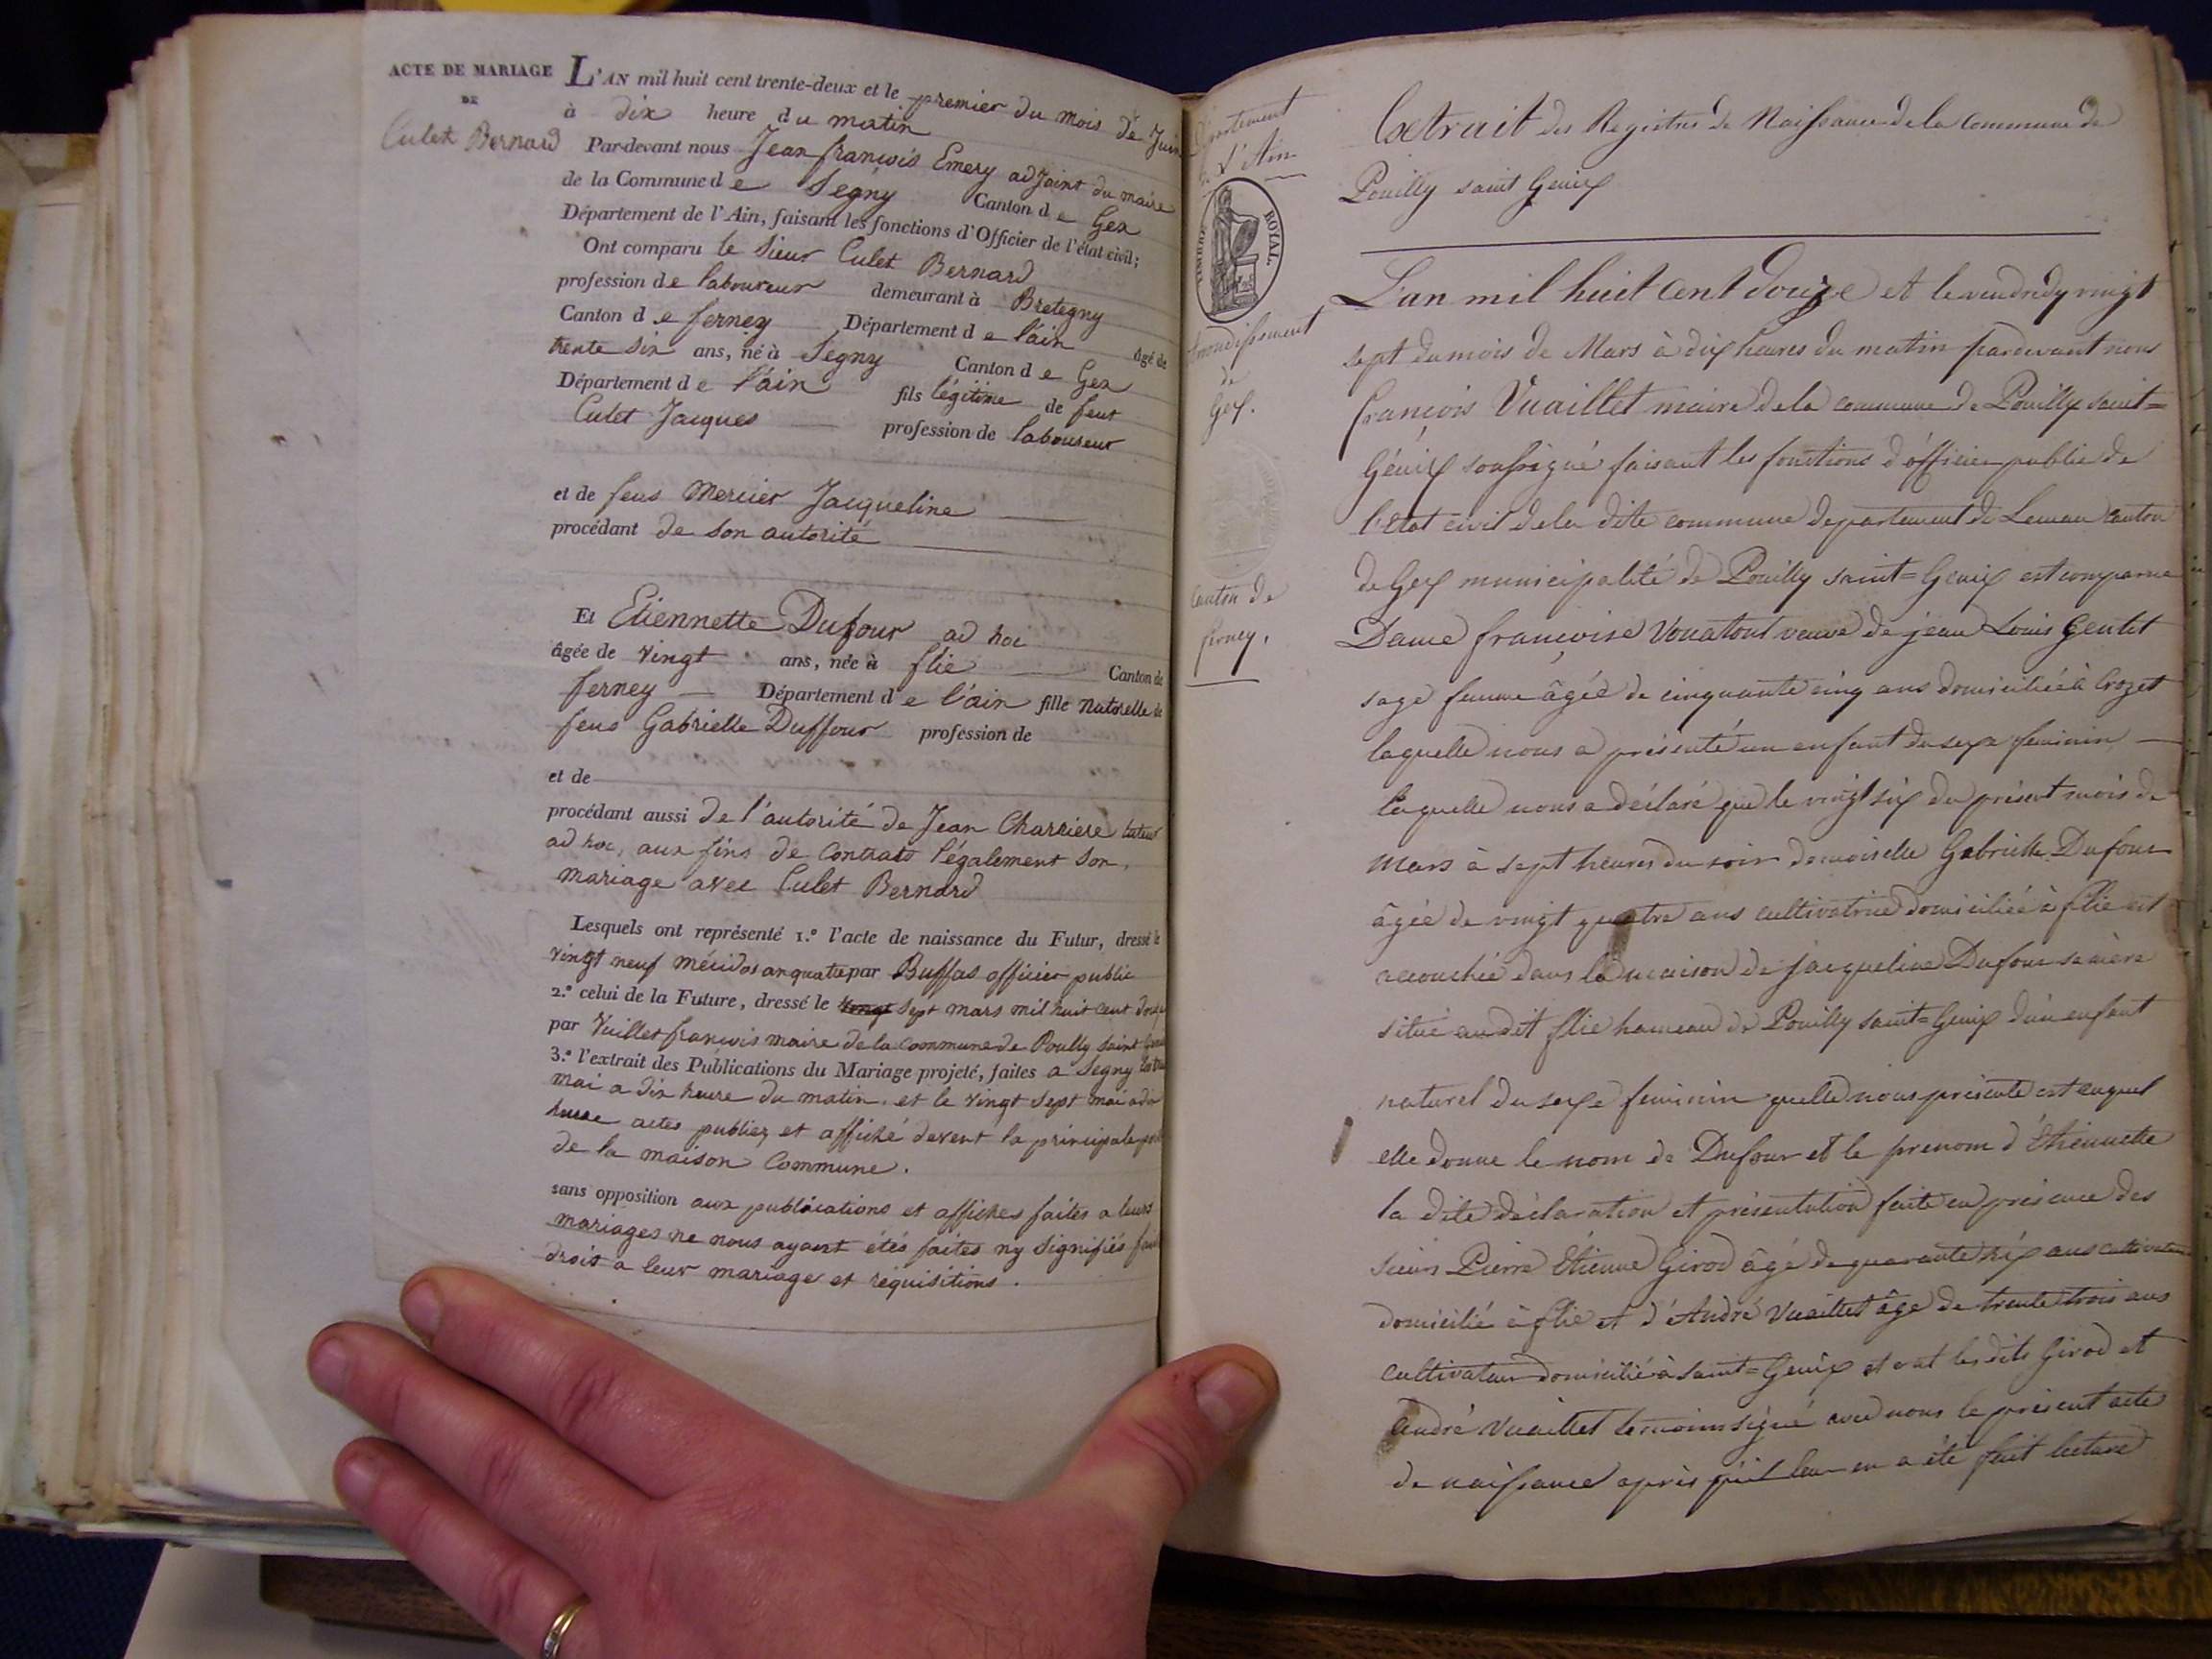 ACTE DE MARIAGE
DE
Culet Bernard
L'AN mil huit cent trente-deux et le premier du mois de Juin
à dix heure du matin
Par-devant nous Jean françois Emery adjoint du maire
de la Commune de Segny Canton de Gex
Département de l'Ain, faisant les fonctions d'Officier de l'état civil;
Ont comparu le Sieur Culet Bernard
profession de laboureur demeurant à Bretegny
Canton de ferney Département de l'ain âgé de
trente six ans, né à Segny Canton de Gex
Département de l'ain fils légitime de feut
Culet Jacques profession de laboureur
et de feus Mercier Jacqueline
procédant de son autorité
Et Etiennette Dufour ad hoc
âgée de vingt ans, née à flie Canton de
ferney Département de l'ain fille naturelle de
feus Gabrielle Duffour profession de
et de
procédant aussi de l'autorité de Jean Charriere tuteur
ad hoc, aux fins de contrats légalement son
mariage avec Culet Bernard
Lesquels ont représenté 1.º l'acte de naissance du Futur, dressé le
vingt neuf an quatre par Buffas officier public
2.º celui de la Future, dressé le vingt sept mars mil huit cent douze
par Vuillet francois maire de la commune de Pouilly Saint
3.º l'extrait des Publications du Mariage projeté, faites a Segny
mai a dix heure du matin. et le vingt sept mai a dix
heure actes publiez et affiché devent la principale
de la maison Commune.
sans opposition aux publications et affiches faites a leurs
mariages ne nous ayant étés faites ny signifiés
droit a leur mariage et réquisitions.
Département
de L'Ain
TIMBRE ROYAL
Arrondissement
de
Gex.
Canton de
ferney.
Extrait des Registres de Naissance de la Commune de
Pouilly saint Genix
L'an mil huit Cent douze et le vendredy vingt
sept du mois de Mars à dix heures du matin pardevant nous
françois Vuaillet maire de la commune de Pouilly saint=
Génix soussigné faisant les fonctions d'officier public de
l'Etat civil de la dite commune departement du Leman canton
de Gex municipalité de Pouilly saint=Genix est comparue
Dame francoise Vouatout veuve de jean Louis Gentet
sage femme âgée de cinquante cinq ans domiciliée à Crozet
laquelle nous a présenté un enfant du sexe feminin
laquelle nous a déclaré que le vingt six du présent mois de
Mars à sept heures du soir demoiselle Gabrielle Dufour
âgée de vingt quatre ans cultivatrice domiciliée à flie est
accouchée dans la maison de jacqueline Dufour sa mère
situé au dit flie hameau de Pouilly saint=Genix d'un enfant
naturel du sexe feminin quelle nous présente est auquel
elle donne le nom de Dufour et le prenom d'Etiennette
la dite déclaration et présentation faite en présence des
sieurs Pierre Etienne Girod âgé de quarante six ans cultivateur
domicilié à flie et d'André Vuaillet âge de trente trois ans
cultivateur domicilié à saint=Genix et ont les dits Girod et
André Vuaillet temoins signé avec nous le présent acte
de naissance après qu'il leur en a été fait lecture